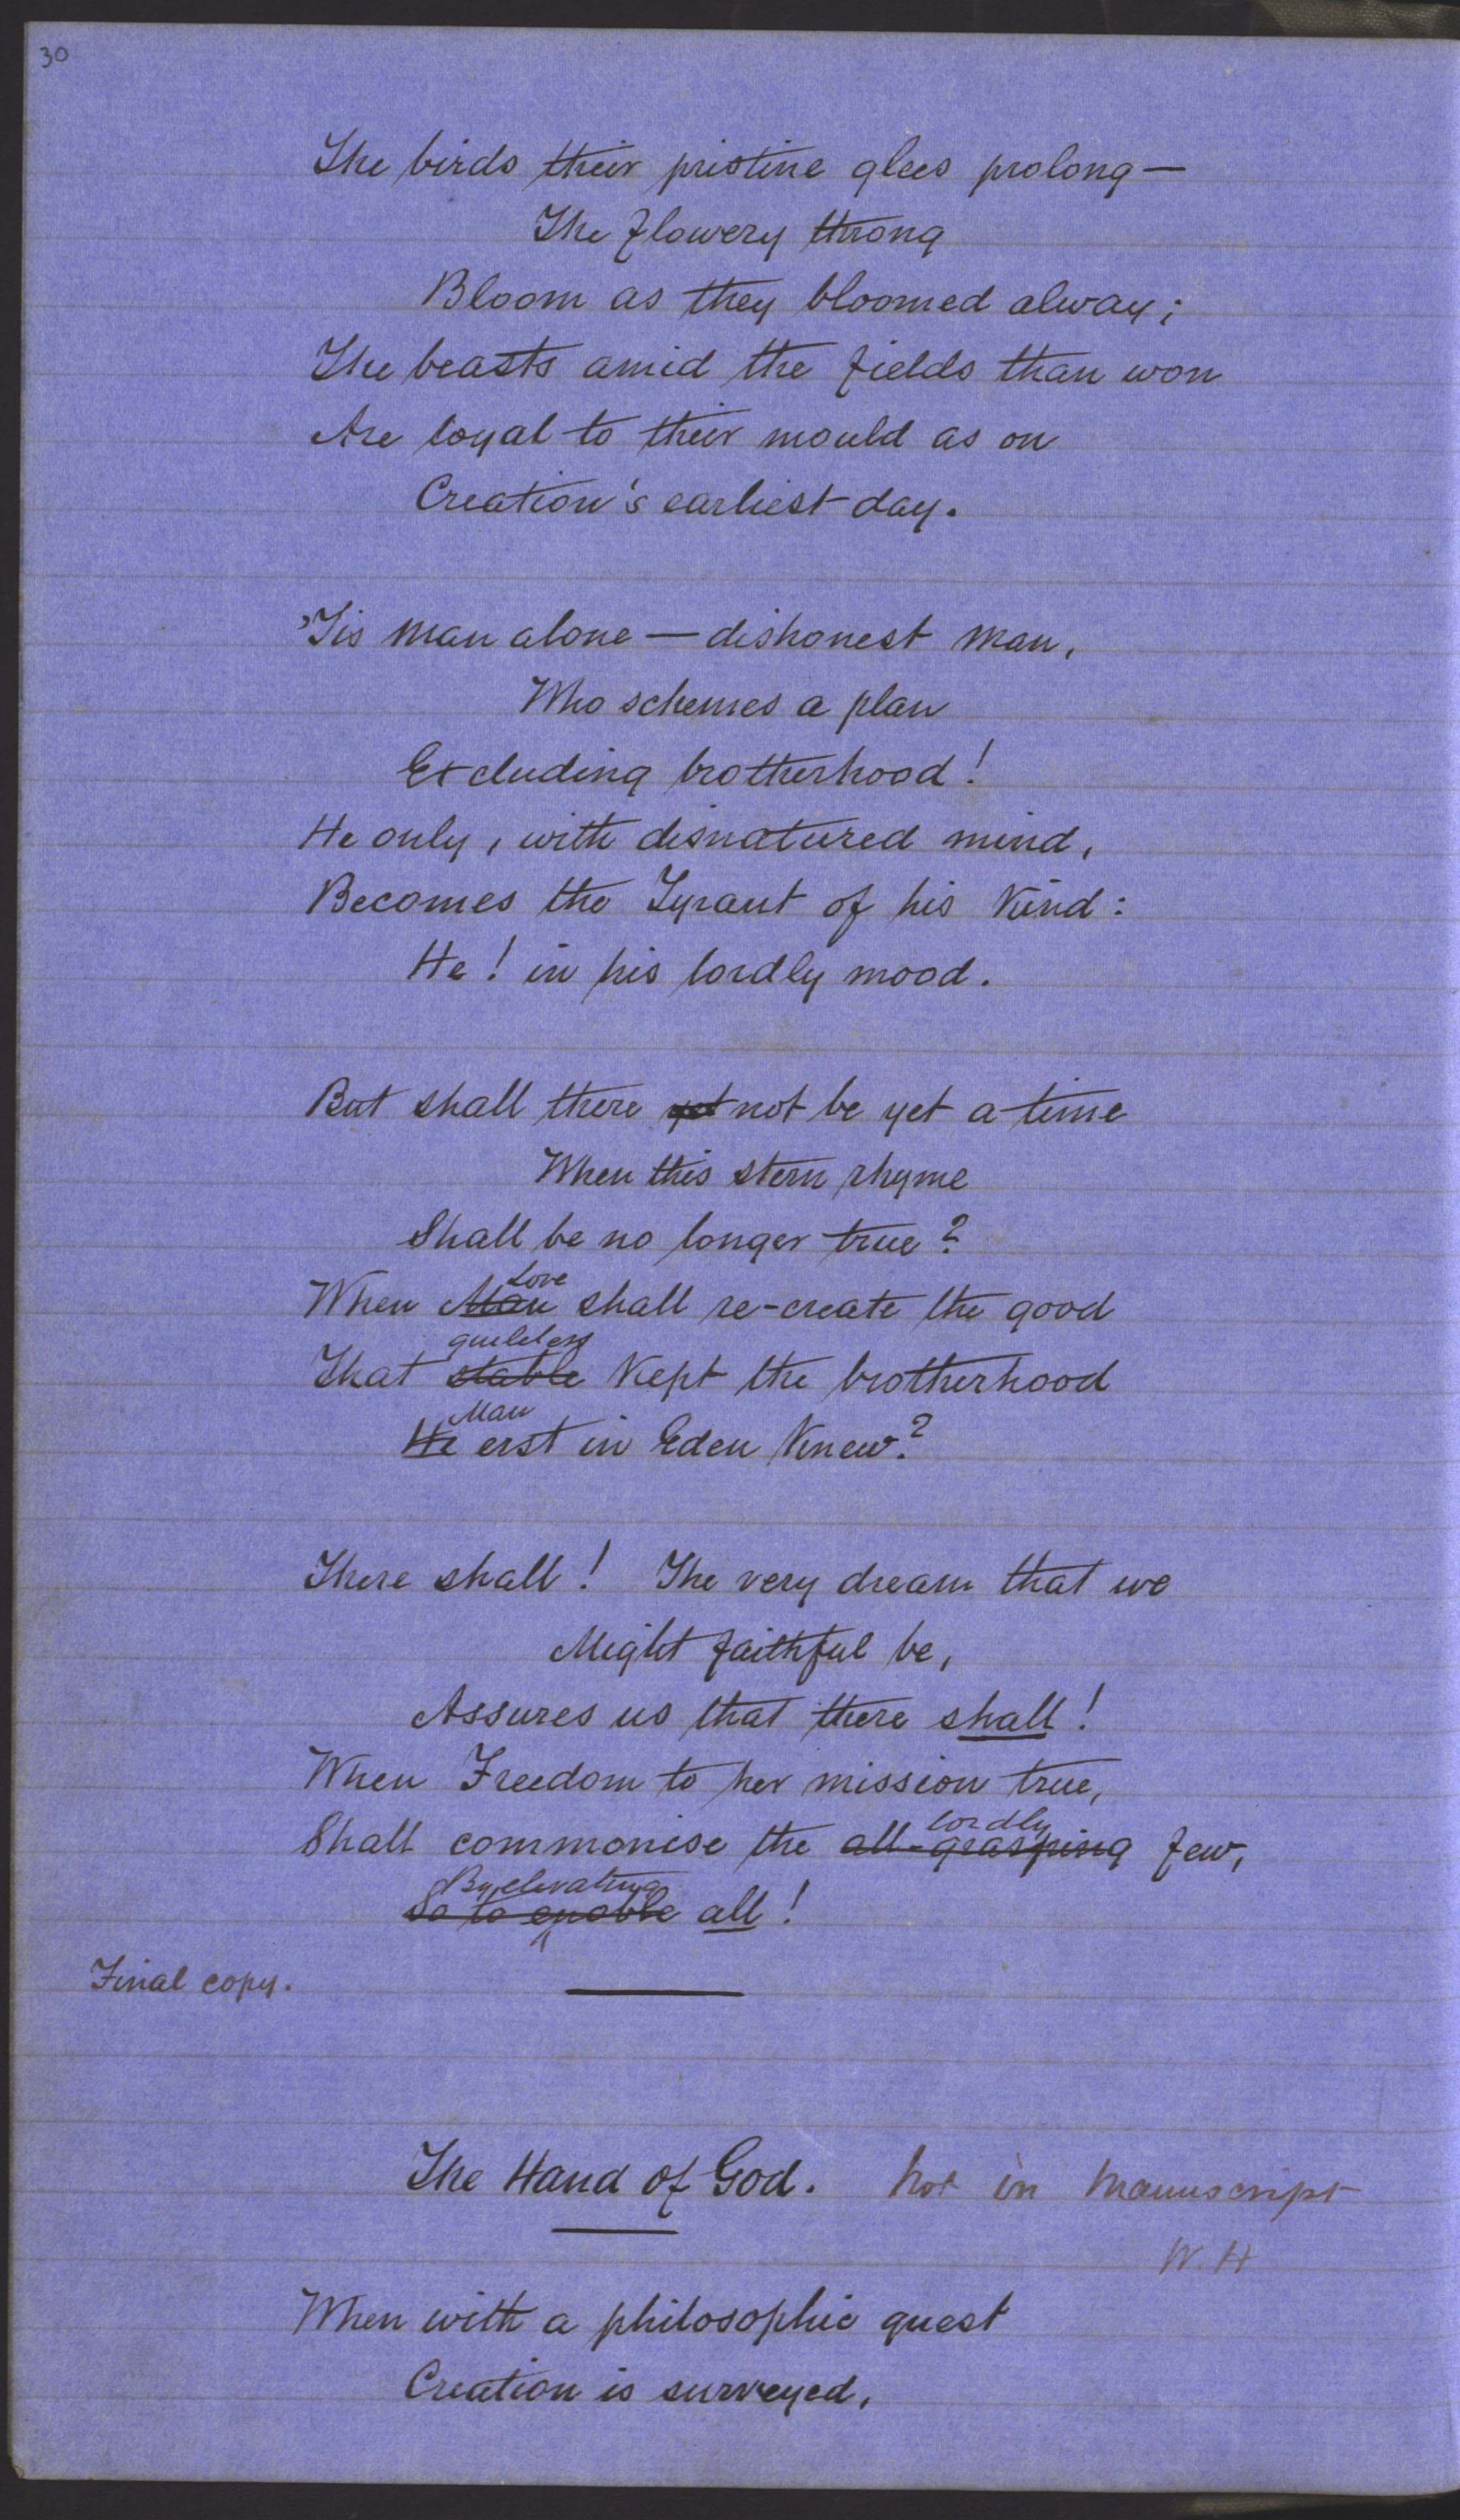 30
The birds their pristine glees prolong—
The flowery throng
Bloom as they bloomed alway;
The beasts amid the fields than won
Are loyal to their mould as on
Creation's earliest day.
'Tis man alone — dishonest man,
Who schemes a plan
Excluding brotherhood!
He only, with disnatured mind,
Becomes the Tyrant of his Kind:
He! in his lordly mood.
But shall there yet not be yet a time
When this stern rhyme
Shall be no longer true?
Love
When Man shall re-create the good
guileless
That stable Kept the brotherhood
Man
He erst in Eden Knew?
There shall! The very dream that we
Might faithful be,
Assures us that there shall!
When Freedom to her mission true,
lordly
Shall commonise the all-grasping few,
By elevating
So to enoble all!
Final copy.
The Hand of God. Not in Manuscript
W. H
When with a philosophic quest
Creation is surveyed,